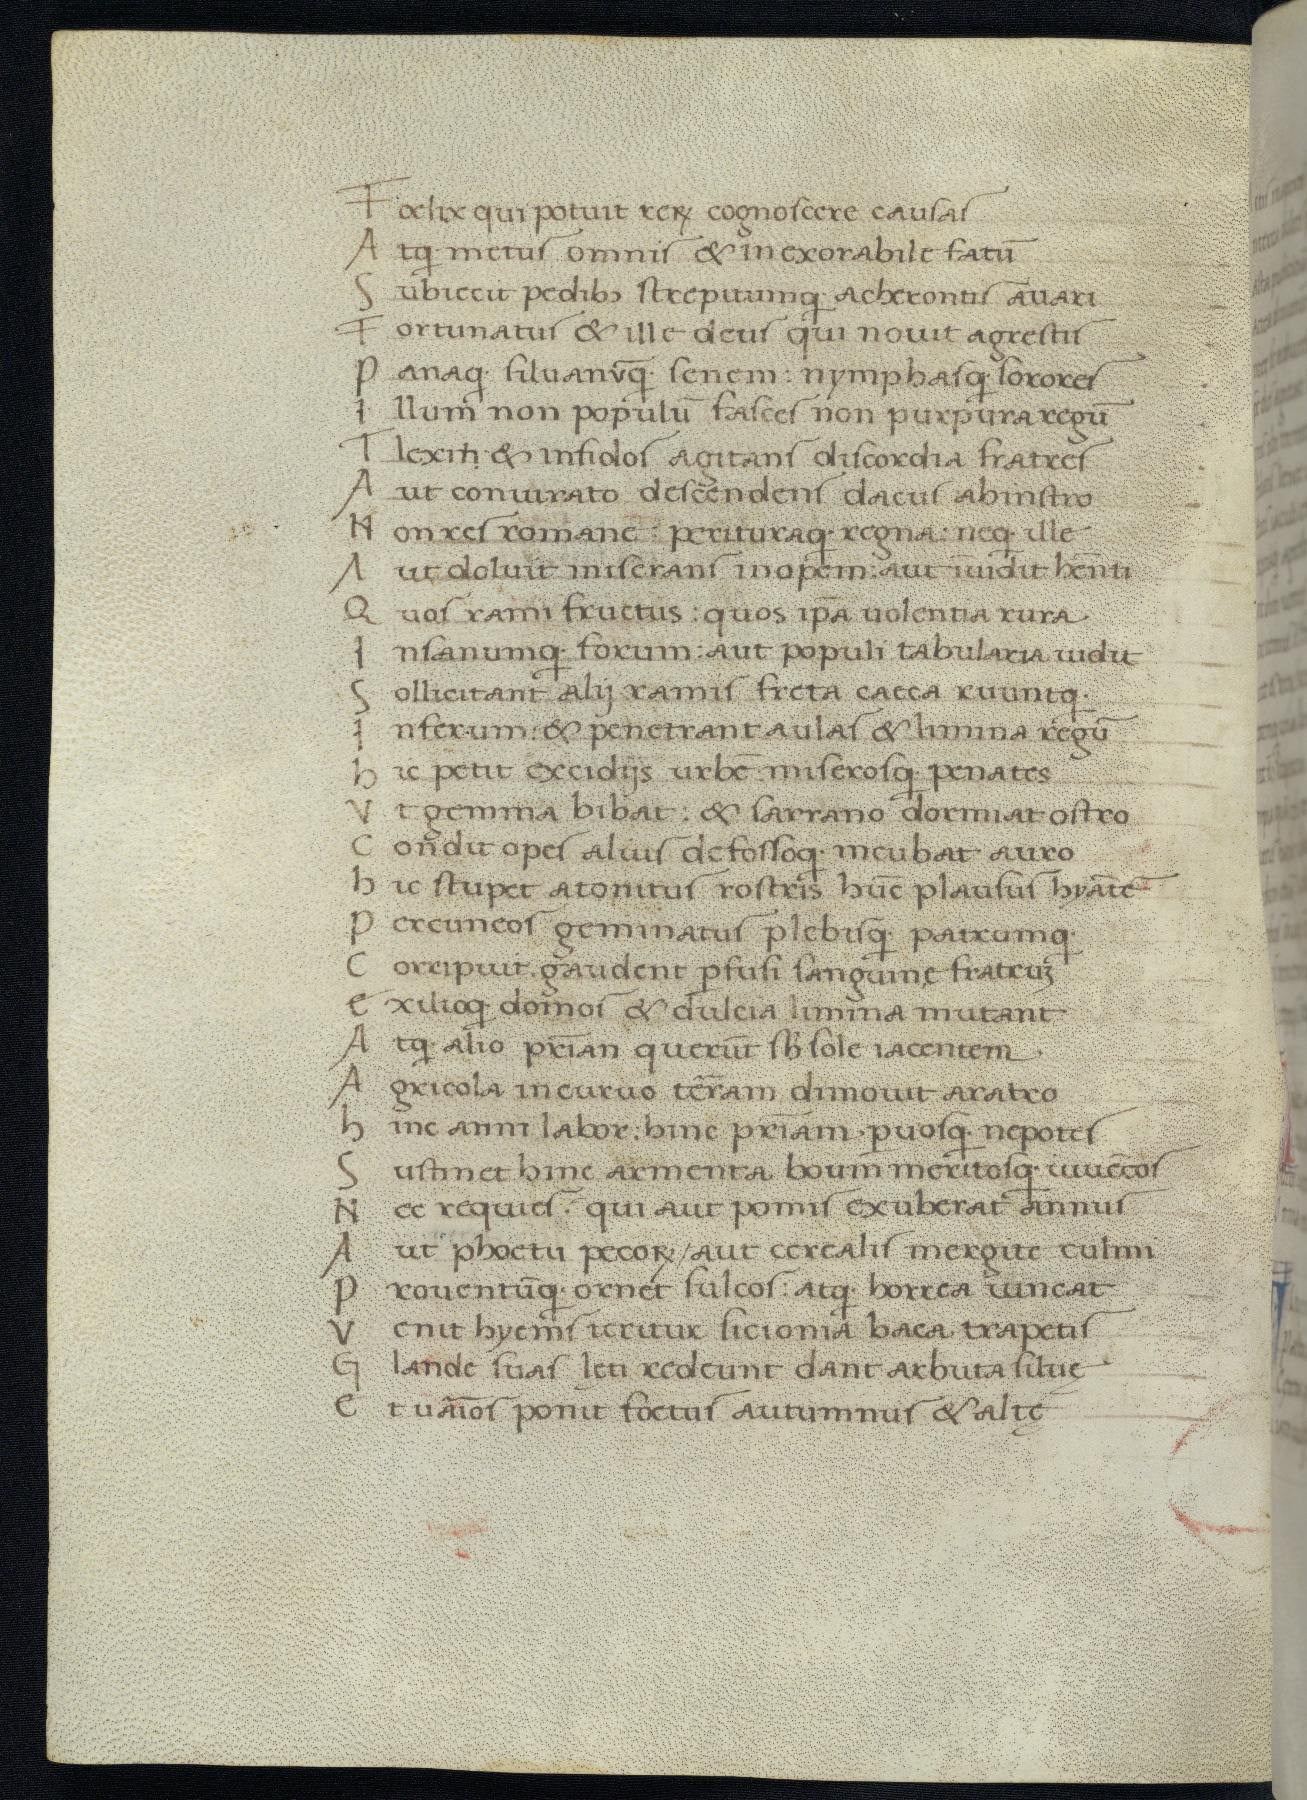 Foelix qui potuit reꝝ cognoscere causas
Atq; metus omnis & inexorabile fatū
Subiecit pedibꝫ strepitumq; acherontis auari
Fortunatus & ille deus qui nouit agrestis
Panaq; siluanūq; senem: nymphasq; sorores
Illum non populū fasces non purpura regū
Flexit: & infidos agitans discordia fratres
Aut coniurato descendens dacus ab instro
Non res romane: perituraq; regna: neq; ille
Aut doluit miserans inopem: aut īuidit hēnti
Quos rami fructus: quos ip̄a uolentia rura
Insanumq; forum: aut populi tabularia uidit
Sollicitant alij ramis freta caeca ruuntq;
In ferrum: & penetrant aulas & limina regū
hic petit excidijs urbē miserosq; penates
Vt gemma bibat: & sarrano dormiat ostro
Condit opes alius defossoq; incubat auro
hic stupet atonitus rostris hūc plausus hyātē
Per cuneos geminatus plebisq; patrumq;
Corripuit. gaudent ꝑfusi sanguine fratruꝫ
Exilioq; domos & dulcia limina mutant
Atq; alio pr̄iam querūt sb̄ sole iacentem
Agricola incuruo terram dimouit aratro
hinc anni labor: hinc pr̄iam. ꝑuosq; nepotes
Sustinet hinc armenta boum meritosq; iuuēcos
Nec requies. qui aut pomis exuberat annus
Aut phoetu pecoꝝ / aut cerealis mergite culmi
Prouentūq; ornet sulcos: atq; horrea uincat
Venit hyems teritur sicionia baca trapetis
Glande suas lęti redeunt dant arbuta siluę
Et uarios ponit foetus autumnus & altę